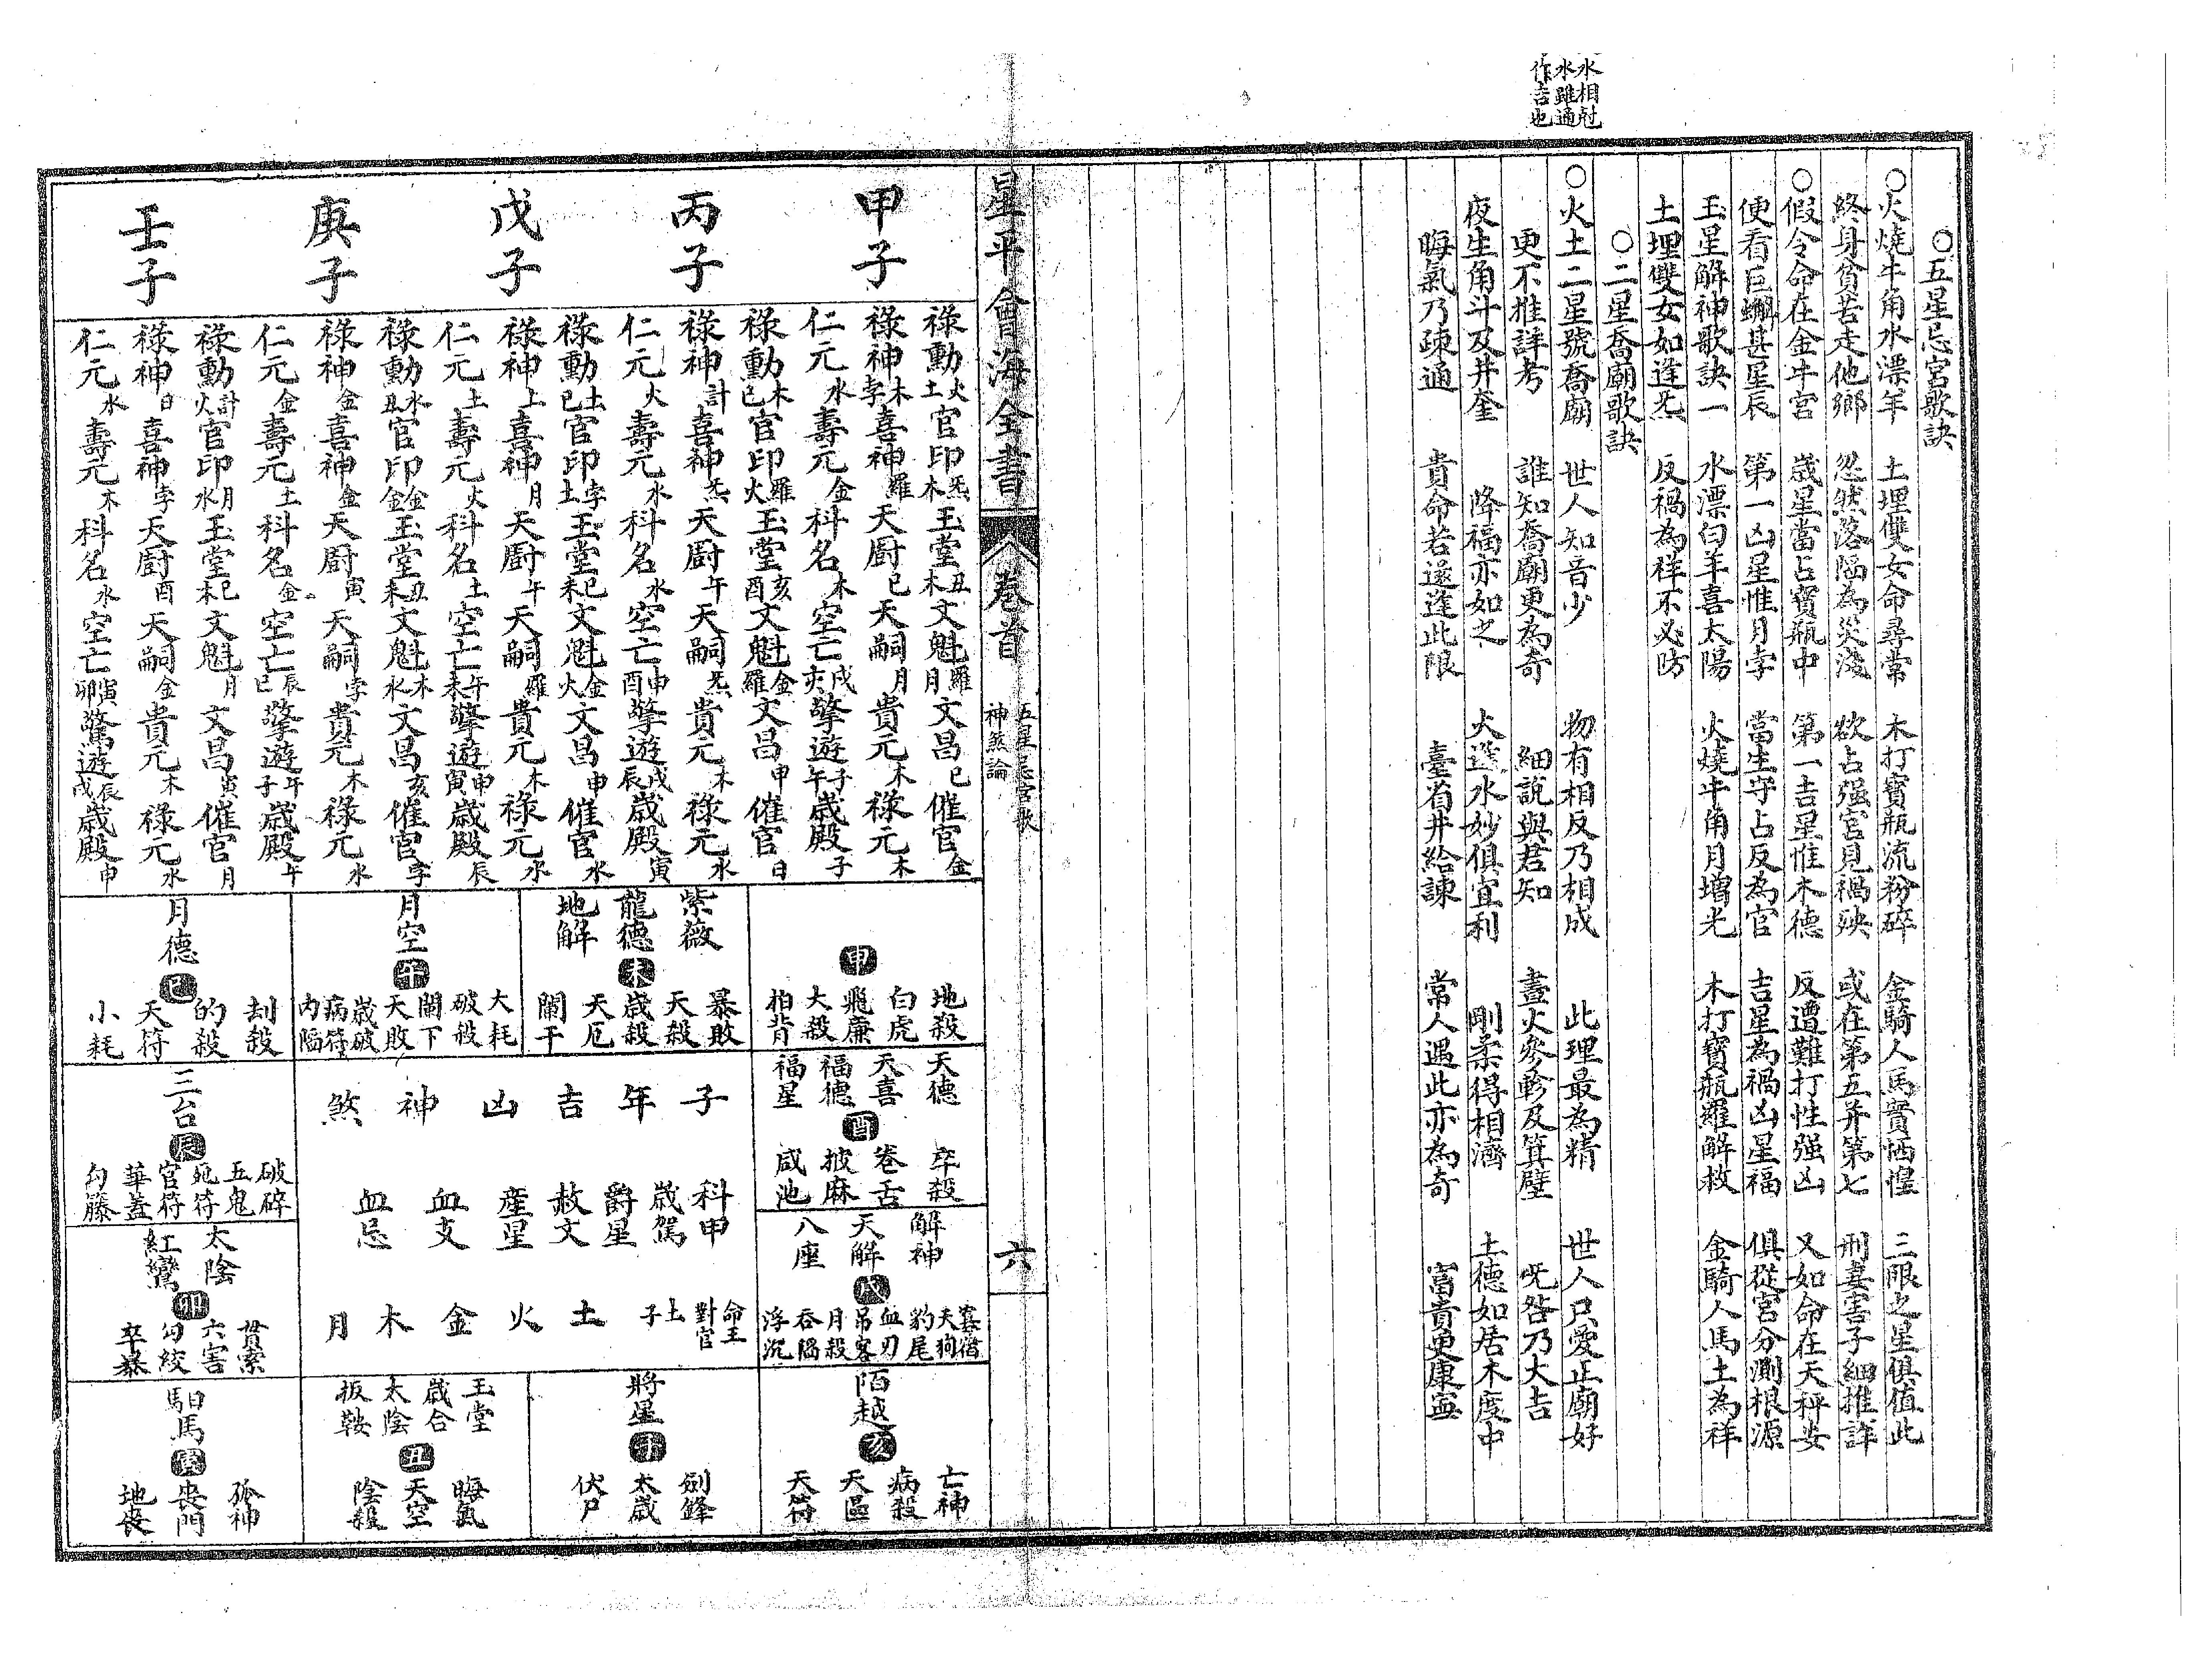 水相尅
水雖通
作吉也
○五星忌宮歌訣
○火燒牛角水漂羊　土埋雙女命尋常　木打寶瓶流粉碎　金騎人馬實恓惶　三限之星俱值此
終身貧苦走他鄉　忽然落陷為災淺　欲占强宮見禍殃　或在第五并第七　刑妻害子細推詳
○假令命在金牛宮　歲星當占寶瓶中　第一吉星惟木德　反遭難打性强凶　又如命在天秤安
便看巨蠏甚星辰　第一凶星惟月孛　當生守占反為官　吉星為禍凶星福　俱從宮分測根源
玉星解神歌訣一　水漂白羊喜太陽　火燒牛角月增光　木打寶瓶羅解救　金騎人馬土為祥
土埋雙女如逢炁　反禍為祥不必防
○二星喬廟歌訣
○火土二星號喬廟　世人知音少　物有相反乃相成　此理最為精　世人只愛正廟好
更不推詳考　誰知喬廟更為奇　細說與君知　晝火參軫及箕壁　旡咎乃大吉
夜生角斗及井奎　降福亦如之　火造水妙俱宜利　剛柔得相濟　土德如居木度中
晦氣乃疎通　貴命若遂逢此限　臺省井給諫　常人遇此亦為奇　富貴更康寧
星平會海全書　卷首　五星忌宮歌　神煞論　六
甲子
丙子
戊子
庚子
壬子
祿動火土　官印炁木　玉堂丑木　文魁羅月　文昌巳　催官金
祿神木孛　喜神羅　天廚巳　天嗣月　貴元木　祿元木
仁元水　壽元金　科名木　空亡戌亥　擎遊子午　歲殿子
祿動木巳　官印羅火　玉堂亥酉　文魁金羅　文昌申　催官日
祿神計　喜神炁　天廚午　天嗣炁　貴元木　祿元水
仁元火　壽元水　科名水　空亡申酉　擎遊戌辰　歲殿寅
祿動土巳　官印孛土　玉堂巳未　文魁金火　文昌申　催官水
祿神上　喜神月　天廚午　天嗣羅　貴元木　祿元水
仁元土　壽元火　科名土　空亡午未　擎遊申寅　歲殿辰
祿動水丑　官印金金　玉堂丑未　文魁木水　文昌亥　催官孛
祿神金　喜神金　天廚寅　天嗣孛　貴元木　祿元水
仁元金　壽元土　科名金　空亡辰巳　擎遊午子　歲殿午
祿動計火　官印月水　玉堂巳木　文魁月　文昌寅　催官月
祿神日　喜神孛　天廚酉　天嗣金　貴元木　祿元水
仁元水　壽元木　科名水　空亡寅卯　驚遊辰戌　歲殿申
申　地殺　白虎　飛廉　大殺　栢背
紫薇　龍德　地解　未　暴敗　天殺　歲殺　天厄　闌干
月空　午　大耗　破殺　闌下　天敗　歲破　病符　內陷
月德　巳　刦殺　的殺　天符　小耗
天德　天喜　福德　福星　酉　卒殺　卷舌　披麻　咸池
子年吉凶神煞
科甲　歲駕　爵星　赦文　產星　血支　血忌
命主　對官　土子　土　火　金　木　月
三台　辰　破碎　五鬼　死符　官符　華蓋　勾滕
解神　天解　八座　戌　寡宿　天狗　豹尾　血刃　吊客　月殺　吞陷　浮沉
太陰　紅鸞　卯　貫索　六害　勾絞　卒暴
陌越　亥　亡神　病殺　天區　天符
將星　子　劍鋒　太歲　伏尸
玉堂　歲合　太陰　扳鞍　丑　晦氣　天空　陰殺
馹馬　寅　孤神　喪門　地喪